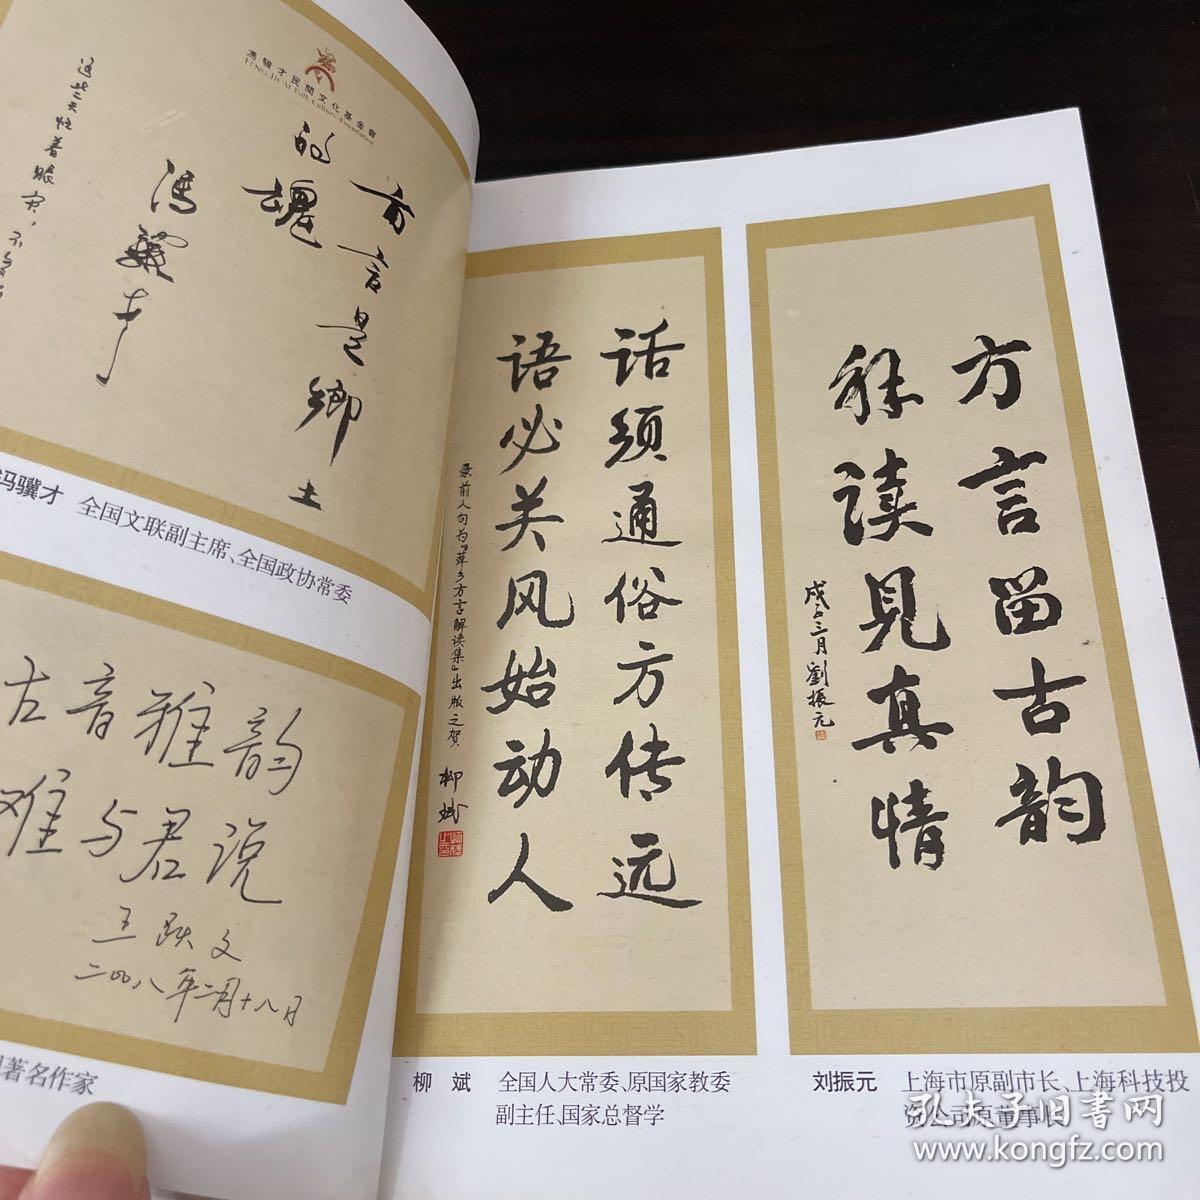 馮驥才民間文化基金會
FENG JICAI Folk Culture Foundation
方言是鄉土
的魂
馮驥才
这些天忙着
冯骥才 全国文联副主席、全国政协常委
古音雅韵
难与君说
王跃文
二〇〇八年二月十八日
著名作家
话须通俗方传远
语必关风始动人
录前人句为《萍乡方言解读集》出版之贺
柳斌
柳 斌 全国人大常委、原国家教委
副主任、国家总督学
方言留古韵
解读見真情
戊子三月劉振元
刘振元 上海市原副市长、上海科技投
资公司原董事长
孔夫子旧书网
www.kongfz.com